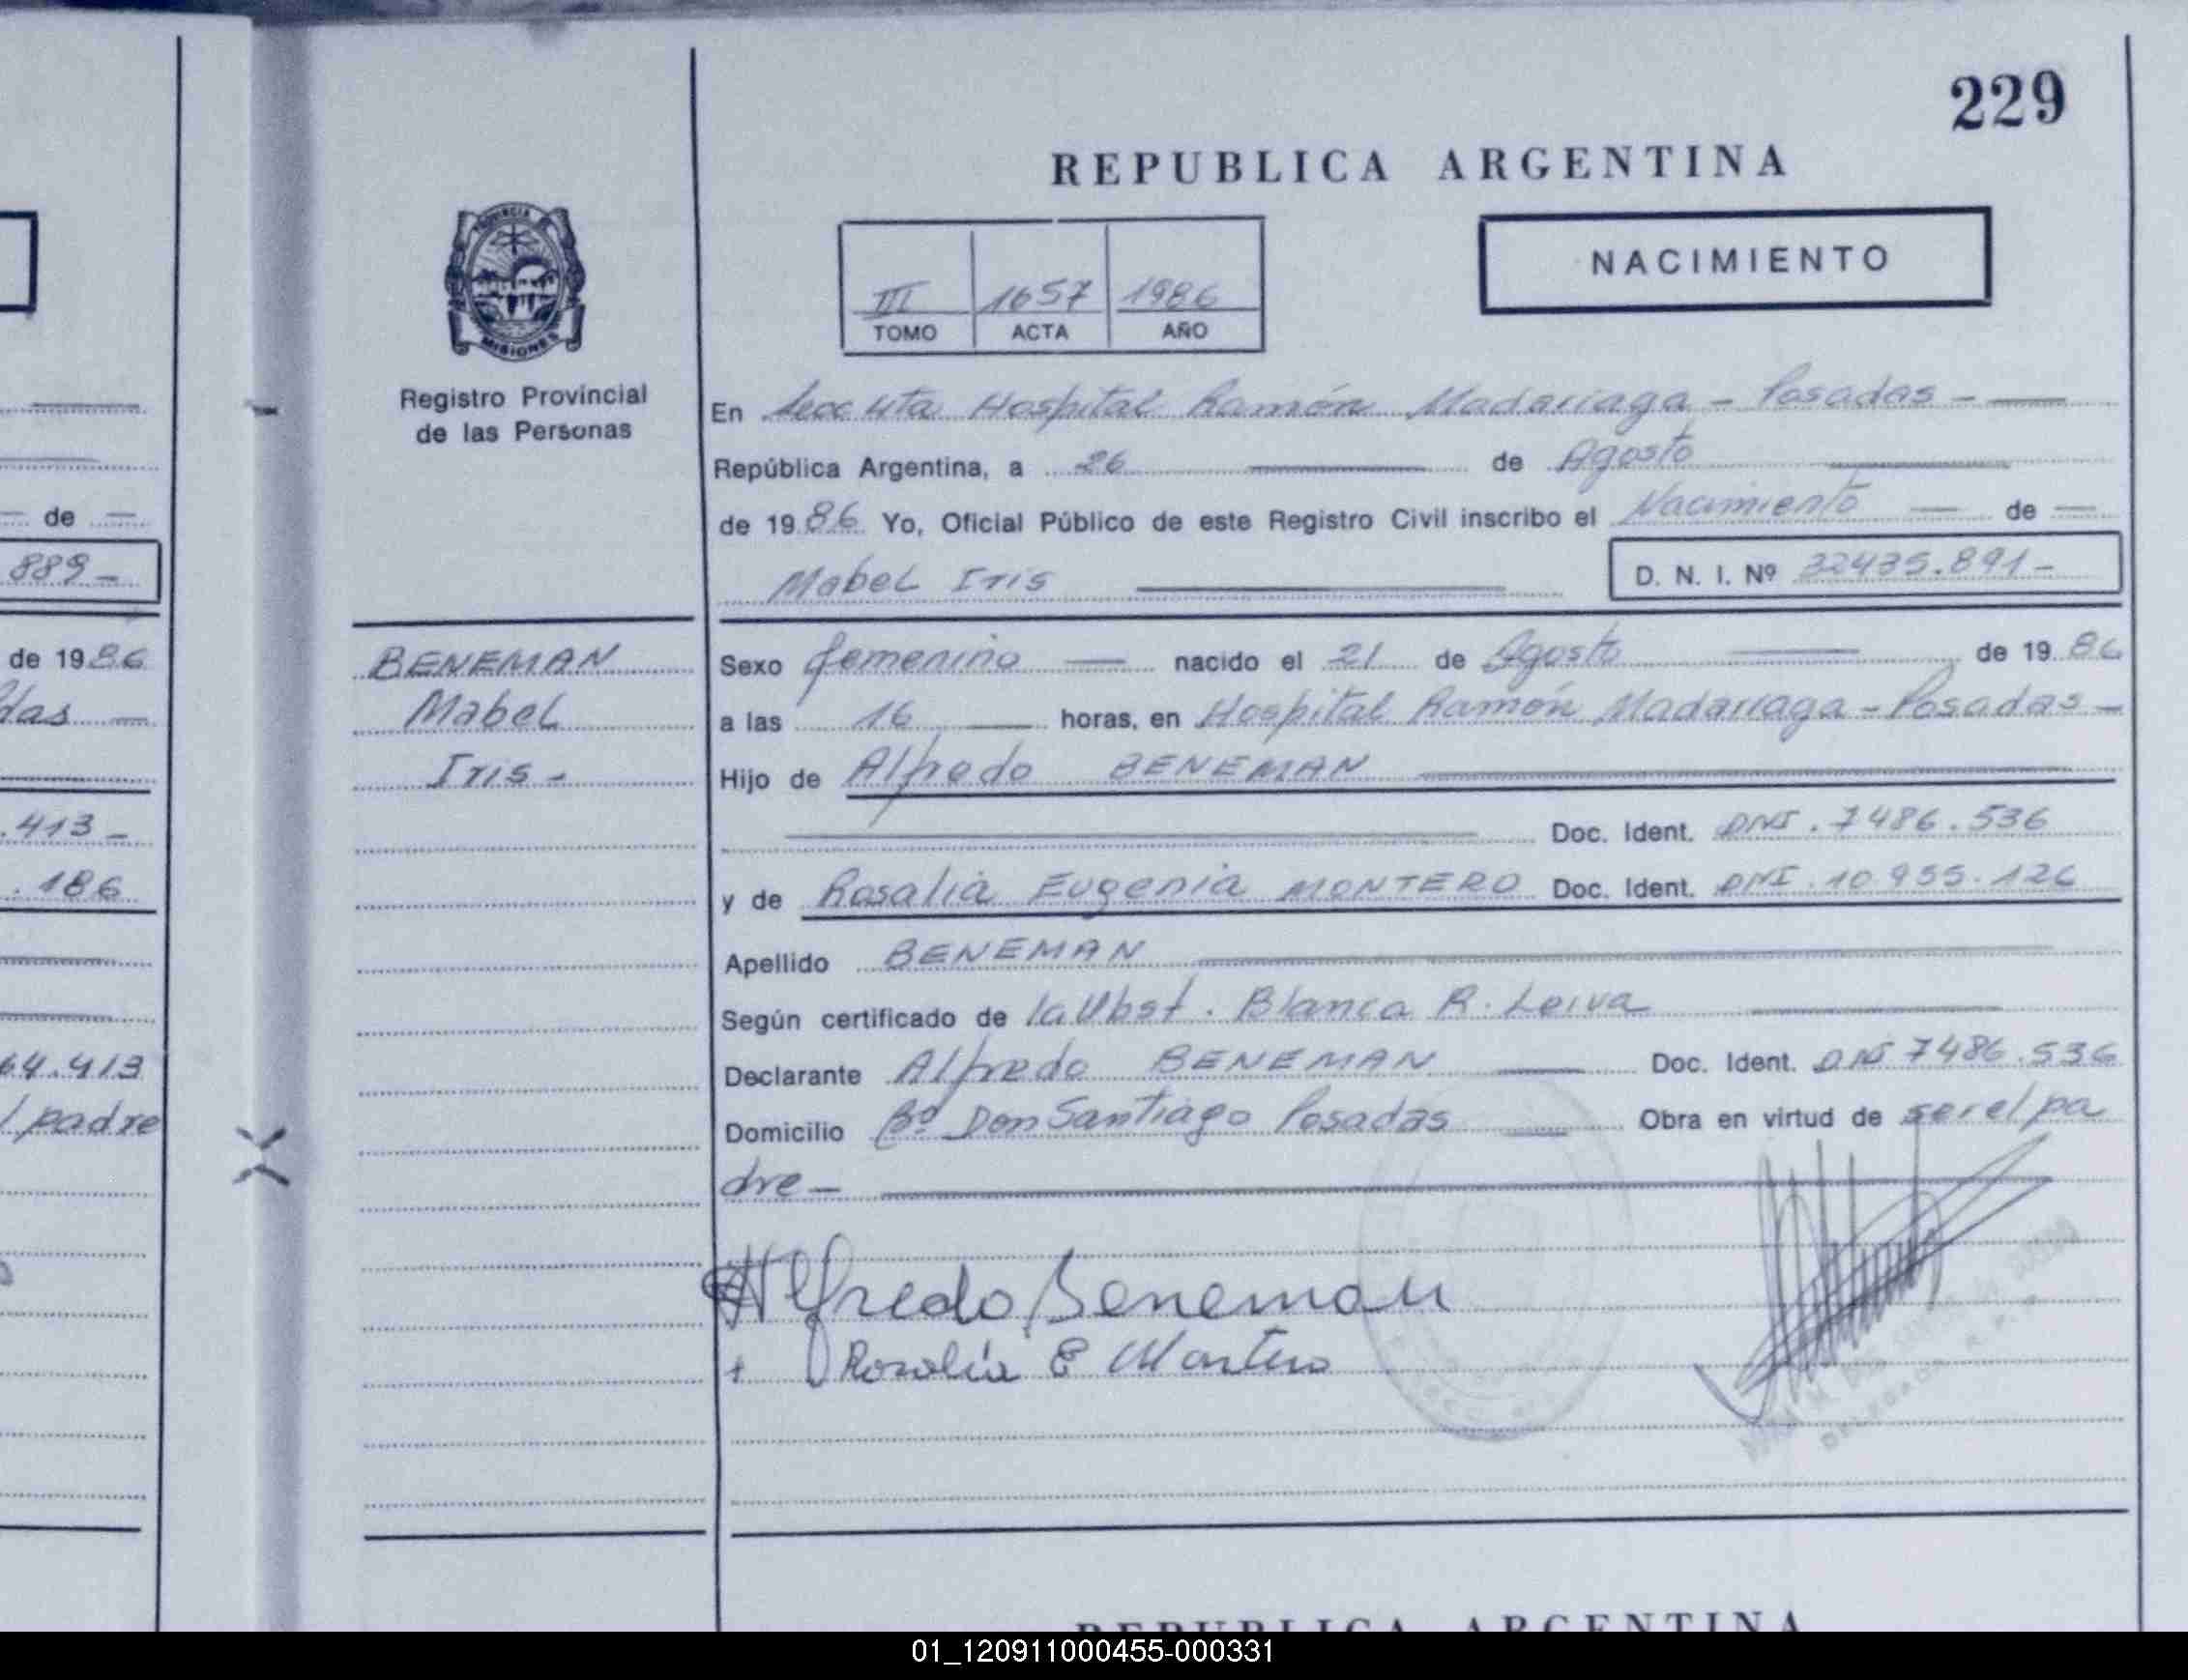 229
REPUBLICA ARGENTINA
NACIMIENTO
III 1657 1986
TOMO ACTA AÑO
PROVINCIA
MISIONES
Registro Provincial
de las Personas
En Hospital Ramón Madariaga - Posadas -
República Argentina, a 26 de Agosto
de 1986 Yo, Oficial Público de este Registro Civil inscribo el Nacimiento de
Mabel Iris D. N. I. Nº 32435.891-
BENEMAN
Mabel
Iris -
Sexo femenino nacido el 21 de Agosto de 1986
a las 16 horas, en Hospital Ramón Madariaga - Posadas -
Hijo de Alfredo BENEMAN
Doc. Ident. DNI. 7486.536
y de Rosalia Eugenia MONTERO Doc. Ident. DNI. 10.955.126
Apellido BENEMAN
Según certificado de la Obst. Blanca R. Leiva
Declarante Alfredo BENEMAN Doc. Ident. DNI 7486.536
Domicilio Bº Don Santiago Posadas Obra en virtud de ser el pa
dre -
Alfredo Beneman
+ Rosalía E Montero
de
889 -
de 1986
das
.413 -
.186
64.413
l padre
REPUBLICA ARGENTINA
01_120911000455-000331